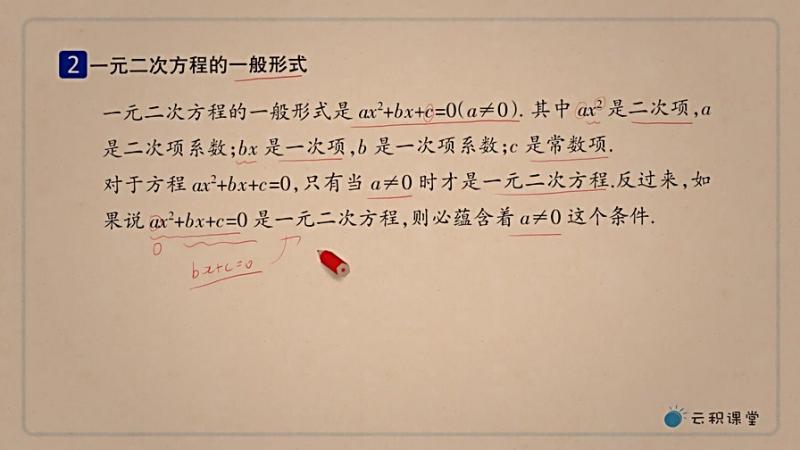 2 一元二次方程的一般形式
一元二次方程的一般形式是 ax²+bx+c=0(a≠0). 其中 ax² 是二次项,a
是二次项系数;bx 是一次项,b 是一次项系数;c 是常数项.
对于方程 ax²+bx+c=0,只有当 a≠0 时才是一元二次方程.反过来,如
果说 ax²+bx+c=0 是一元二次方程,则必蕴含着 a≠0 这个条件.
0
bx+c=0
云积课堂